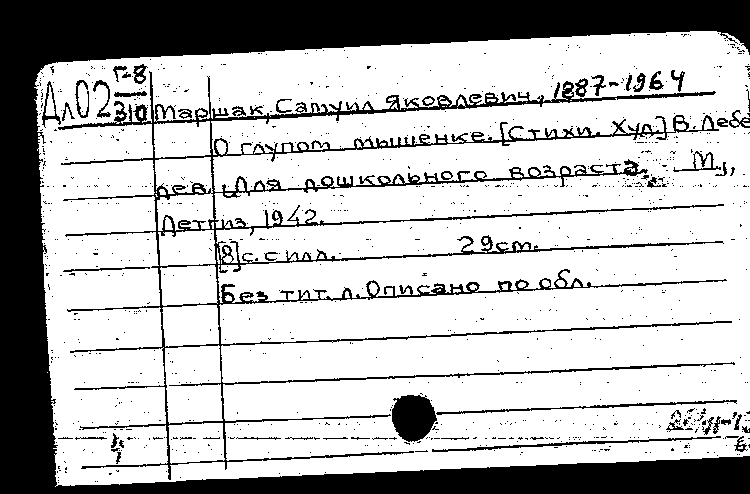 Дл02 Г-8/310 Маршак, Самуил Яковлевич, 1887-1964
О глупом мышенке. [Стихи. Худ.] В. Лебе
дев. Для дошкольного возраста. М.,
Детгиз, 1942.
[8] с. с илл. 29 cm.
Без тит. л. Описано по обл.
4